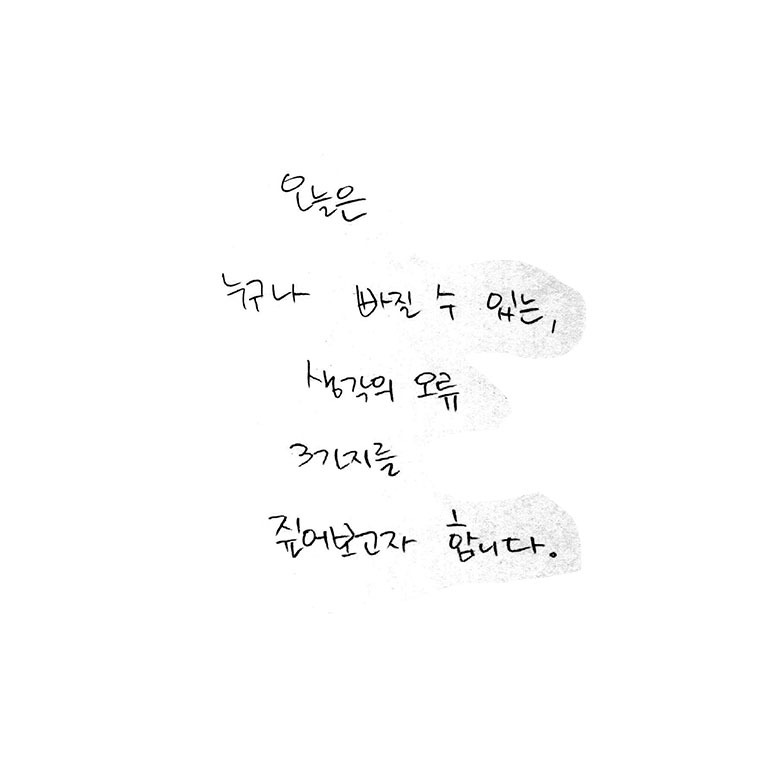 오늘은
누구나 빠질 수 있는,
생각의 오류
3가지를
짚어보고자 합니다.